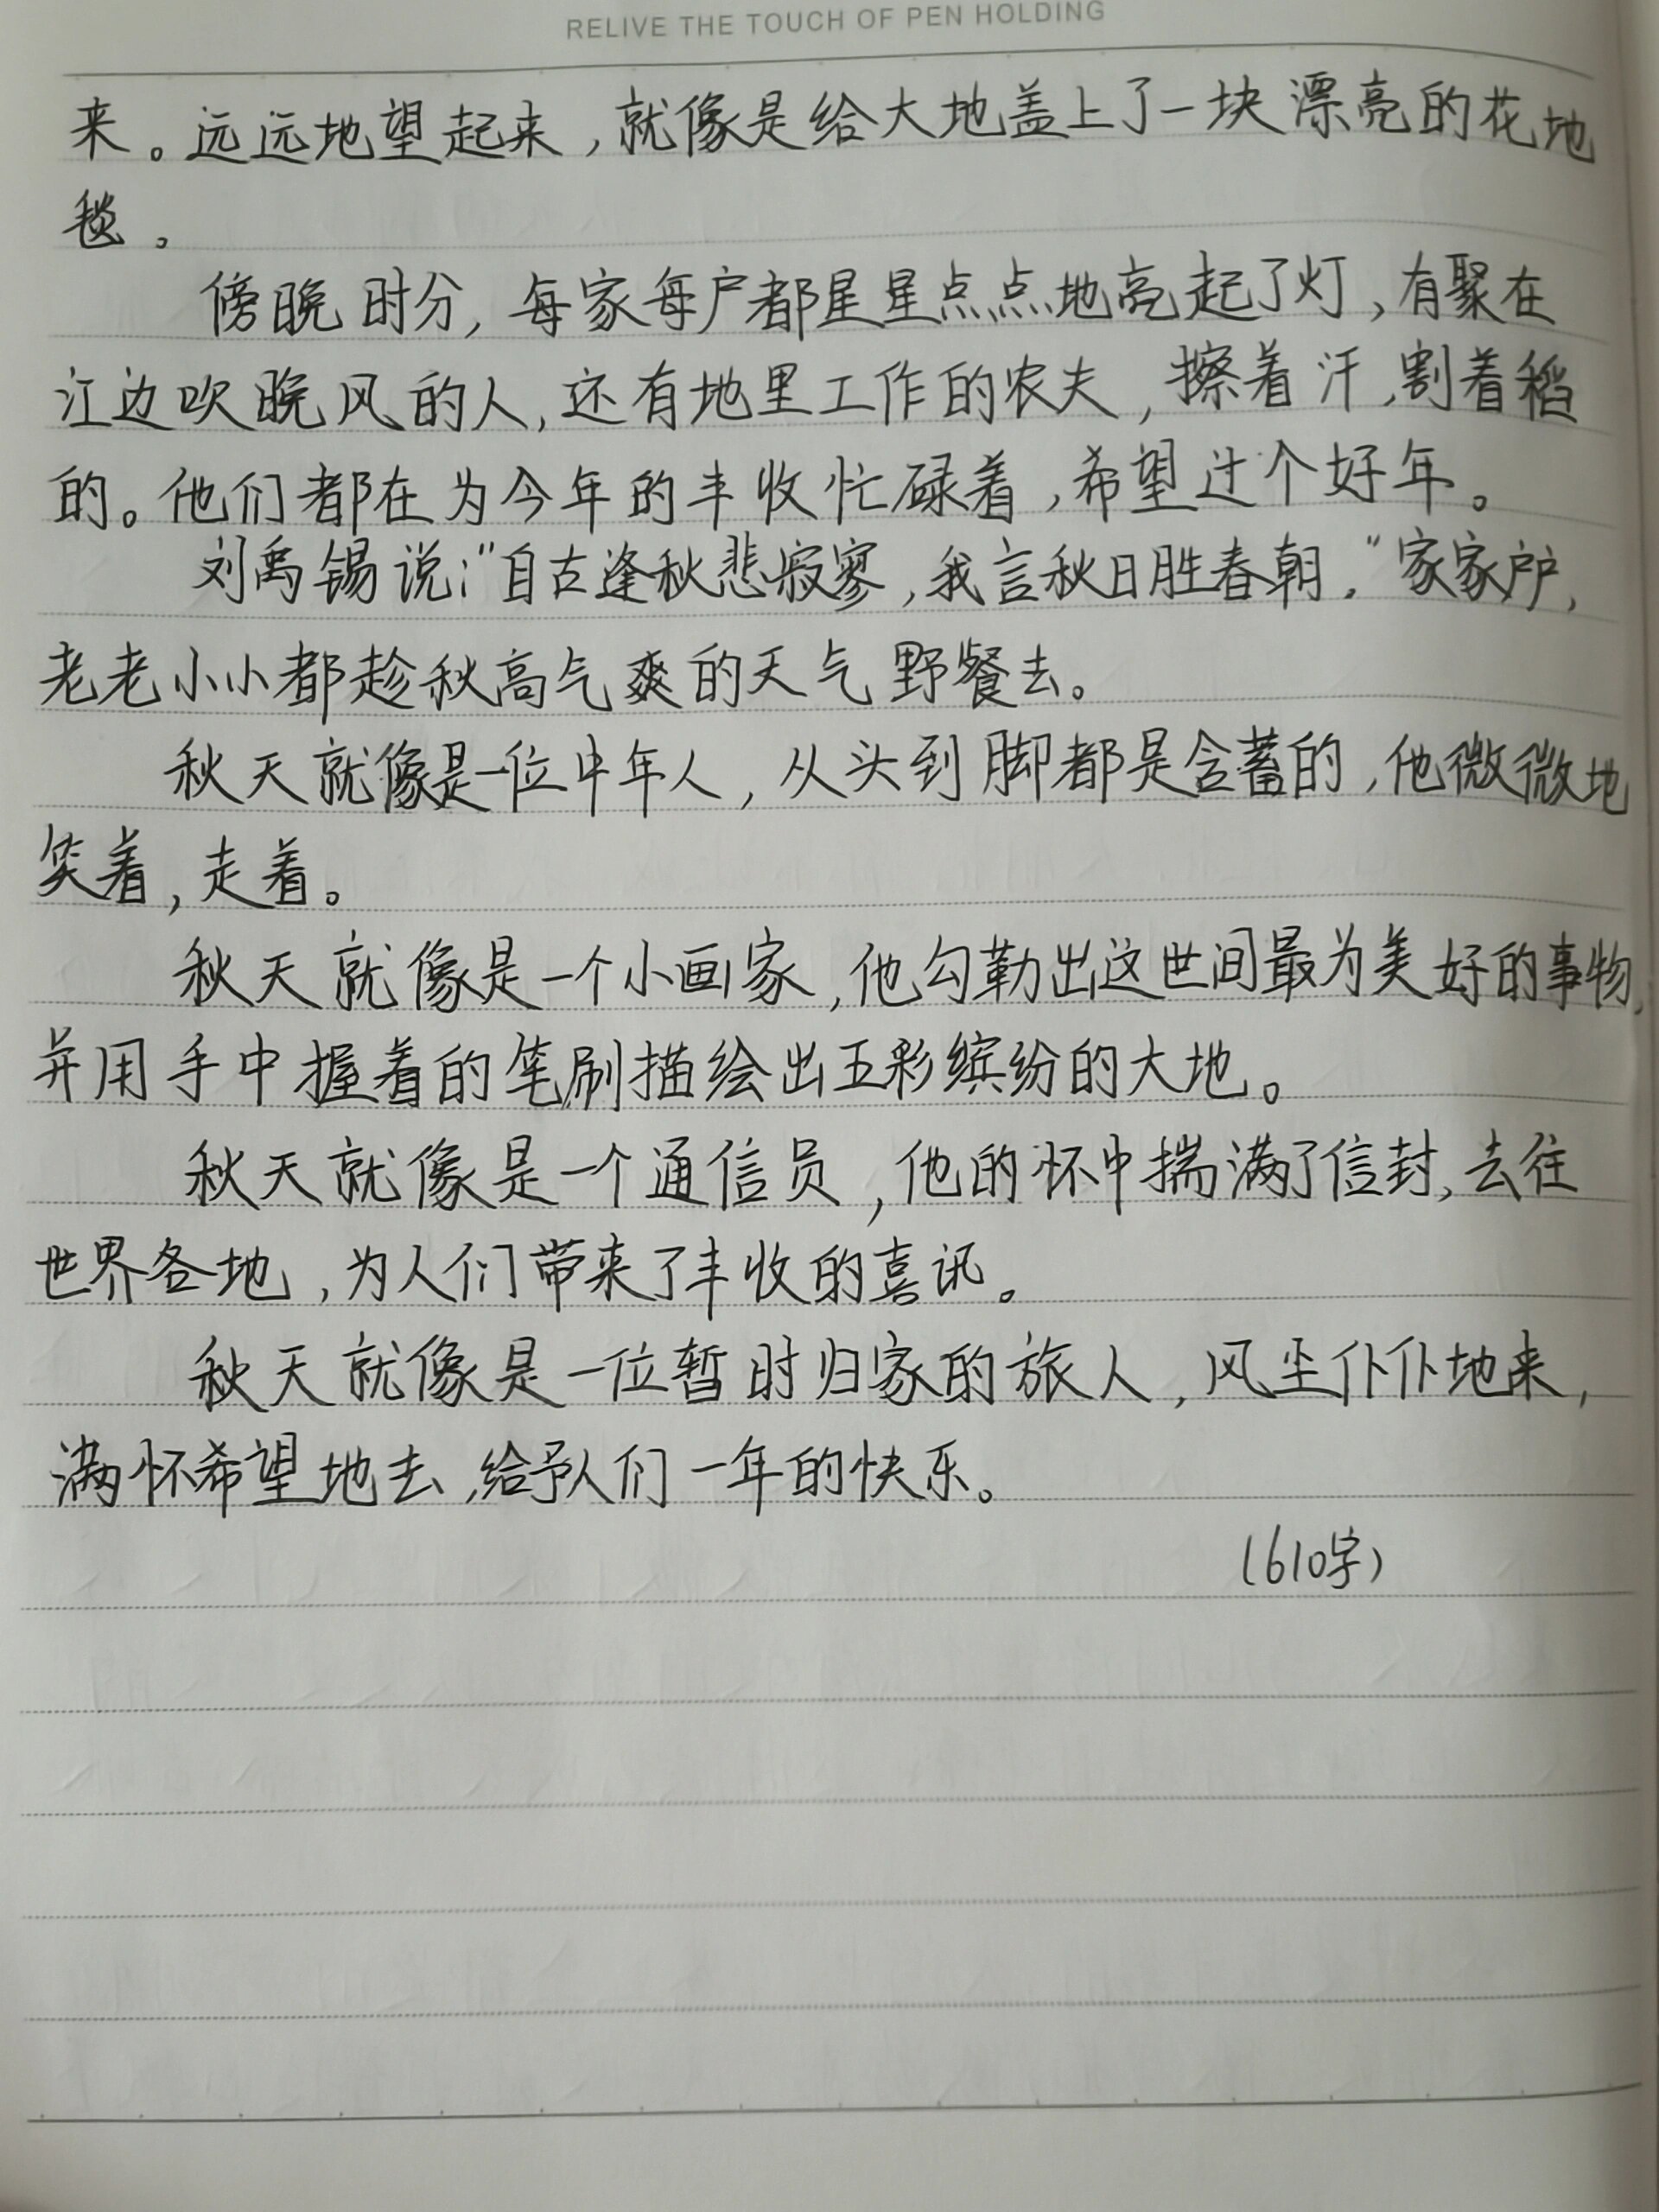 RELIVE THE TOUCH OF PEN HOLDING
来。远远地望起来，就像是给大地盖上了一块漂亮的花地
毯。
傍晚时分，每家每户都星星点点地亮起了灯，有聚在
江边吹晚风的人，还有地里工作的农夫，擦着汗，割着稻
的。他们都在为今年的丰收忙碌着，希望过个好年。
刘禹锡说：“自古逢秋悲寂寥，我言秋日胜春朝。”家家户户，
老老小小都趁秋高气爽的天气野餐去。
秋天就像是一位中年人，从头到脚都是含蓄的，他微微地
笑着，走着。
秋天就像是一个小画家，他勾勒出这世间最为美好的事物，
并用手中握着的笔刷描绘出五彩缤纷的大地。
秋天就像是一个通信员，他的怀中揣满了信封，去往
世界各地，为人们带来了丰收的喜讯。
秋天就像是一位暂时归家的旅人，风尘仆仆地来，
满怀希望地去，给予人们一年的快乐。
（610字）